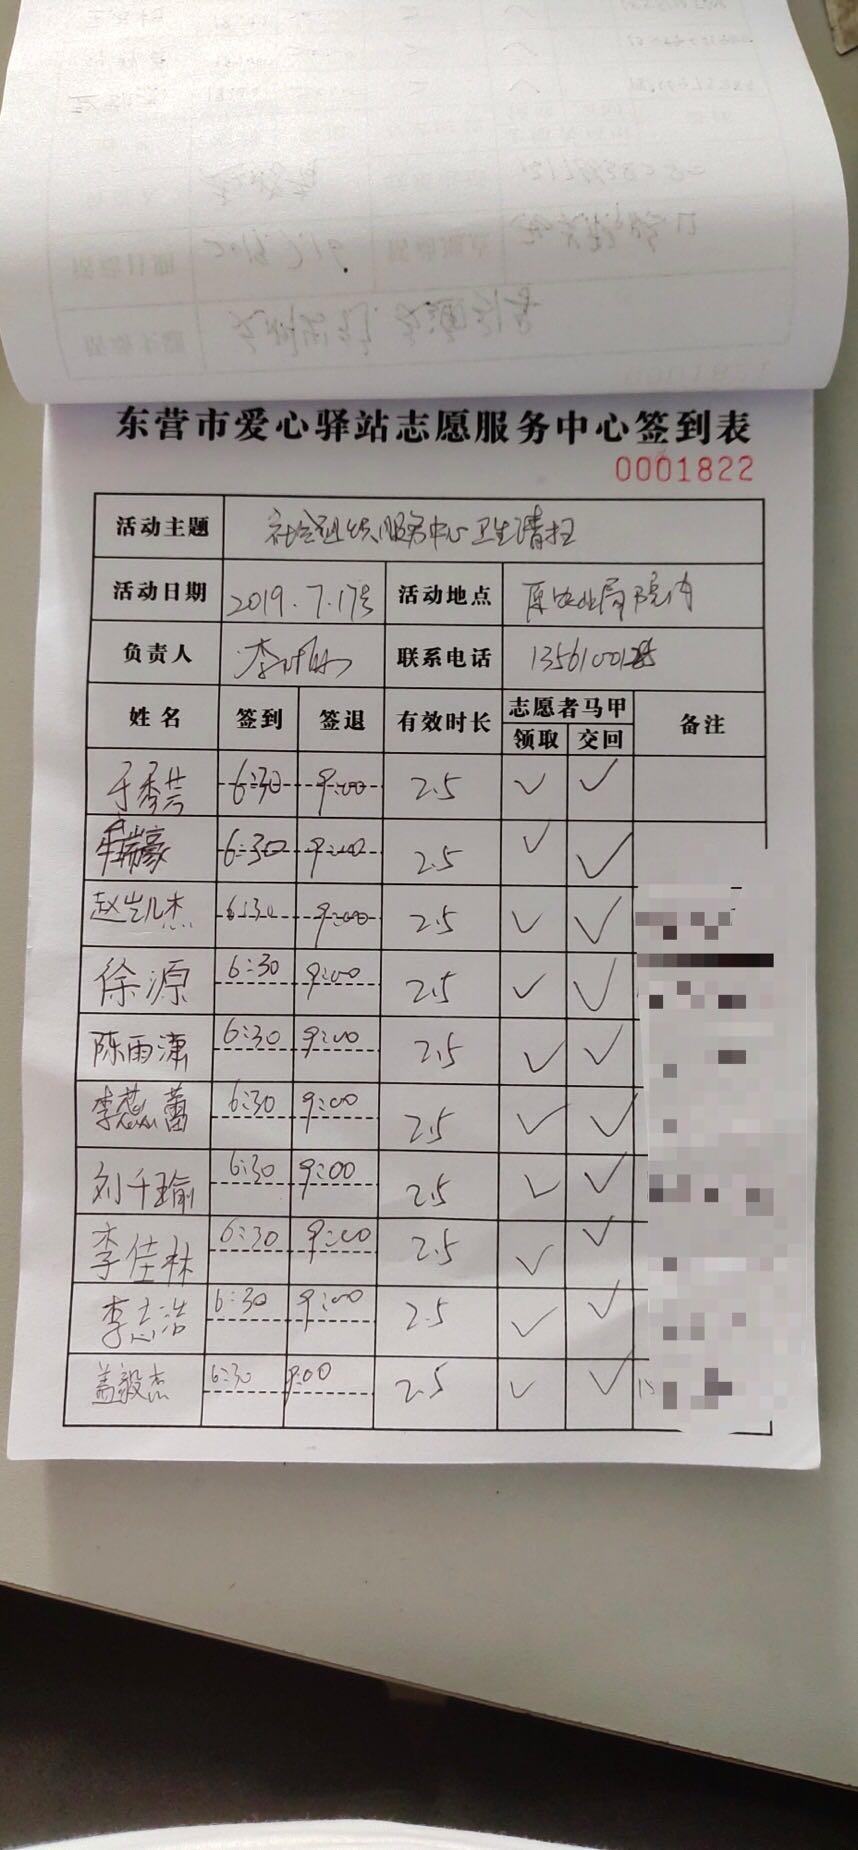 东营市爱心驿站志愿服务中心签到表
0001822
活动主题 社会组织服务中心卫生清扫
活动日期 2019.7.17号 活动地点 原农业局院内
负责人 李 联系电话
姓名 签到 签退 有效时长 志愿者马甲 备注
领取 交回
于秀芸 6:30 9:00 2.5 ✓ ✓
牟瑞豪 6:30 9:00 2.5 ✓ ✓
赵凯杰 6:30 9:00 2.5 ✓ ✓
徐源 6:30 9:00 2.5 ✓ ✓
陈雨潇 6:30 9:00 2.5 ✓ ✓
李蕊蕾 6:30 9:00 2.5 ✓ ✓
刘千瑜 6:30 9:00 2.5 ✓ ✓
李佳林 6:30 9:00 2.5 ✓ ✓
李志浩 6:30 9:00 2.5 ✓ ✓
盖毅杰 6:30 9:00 2.5 ✓ ✓